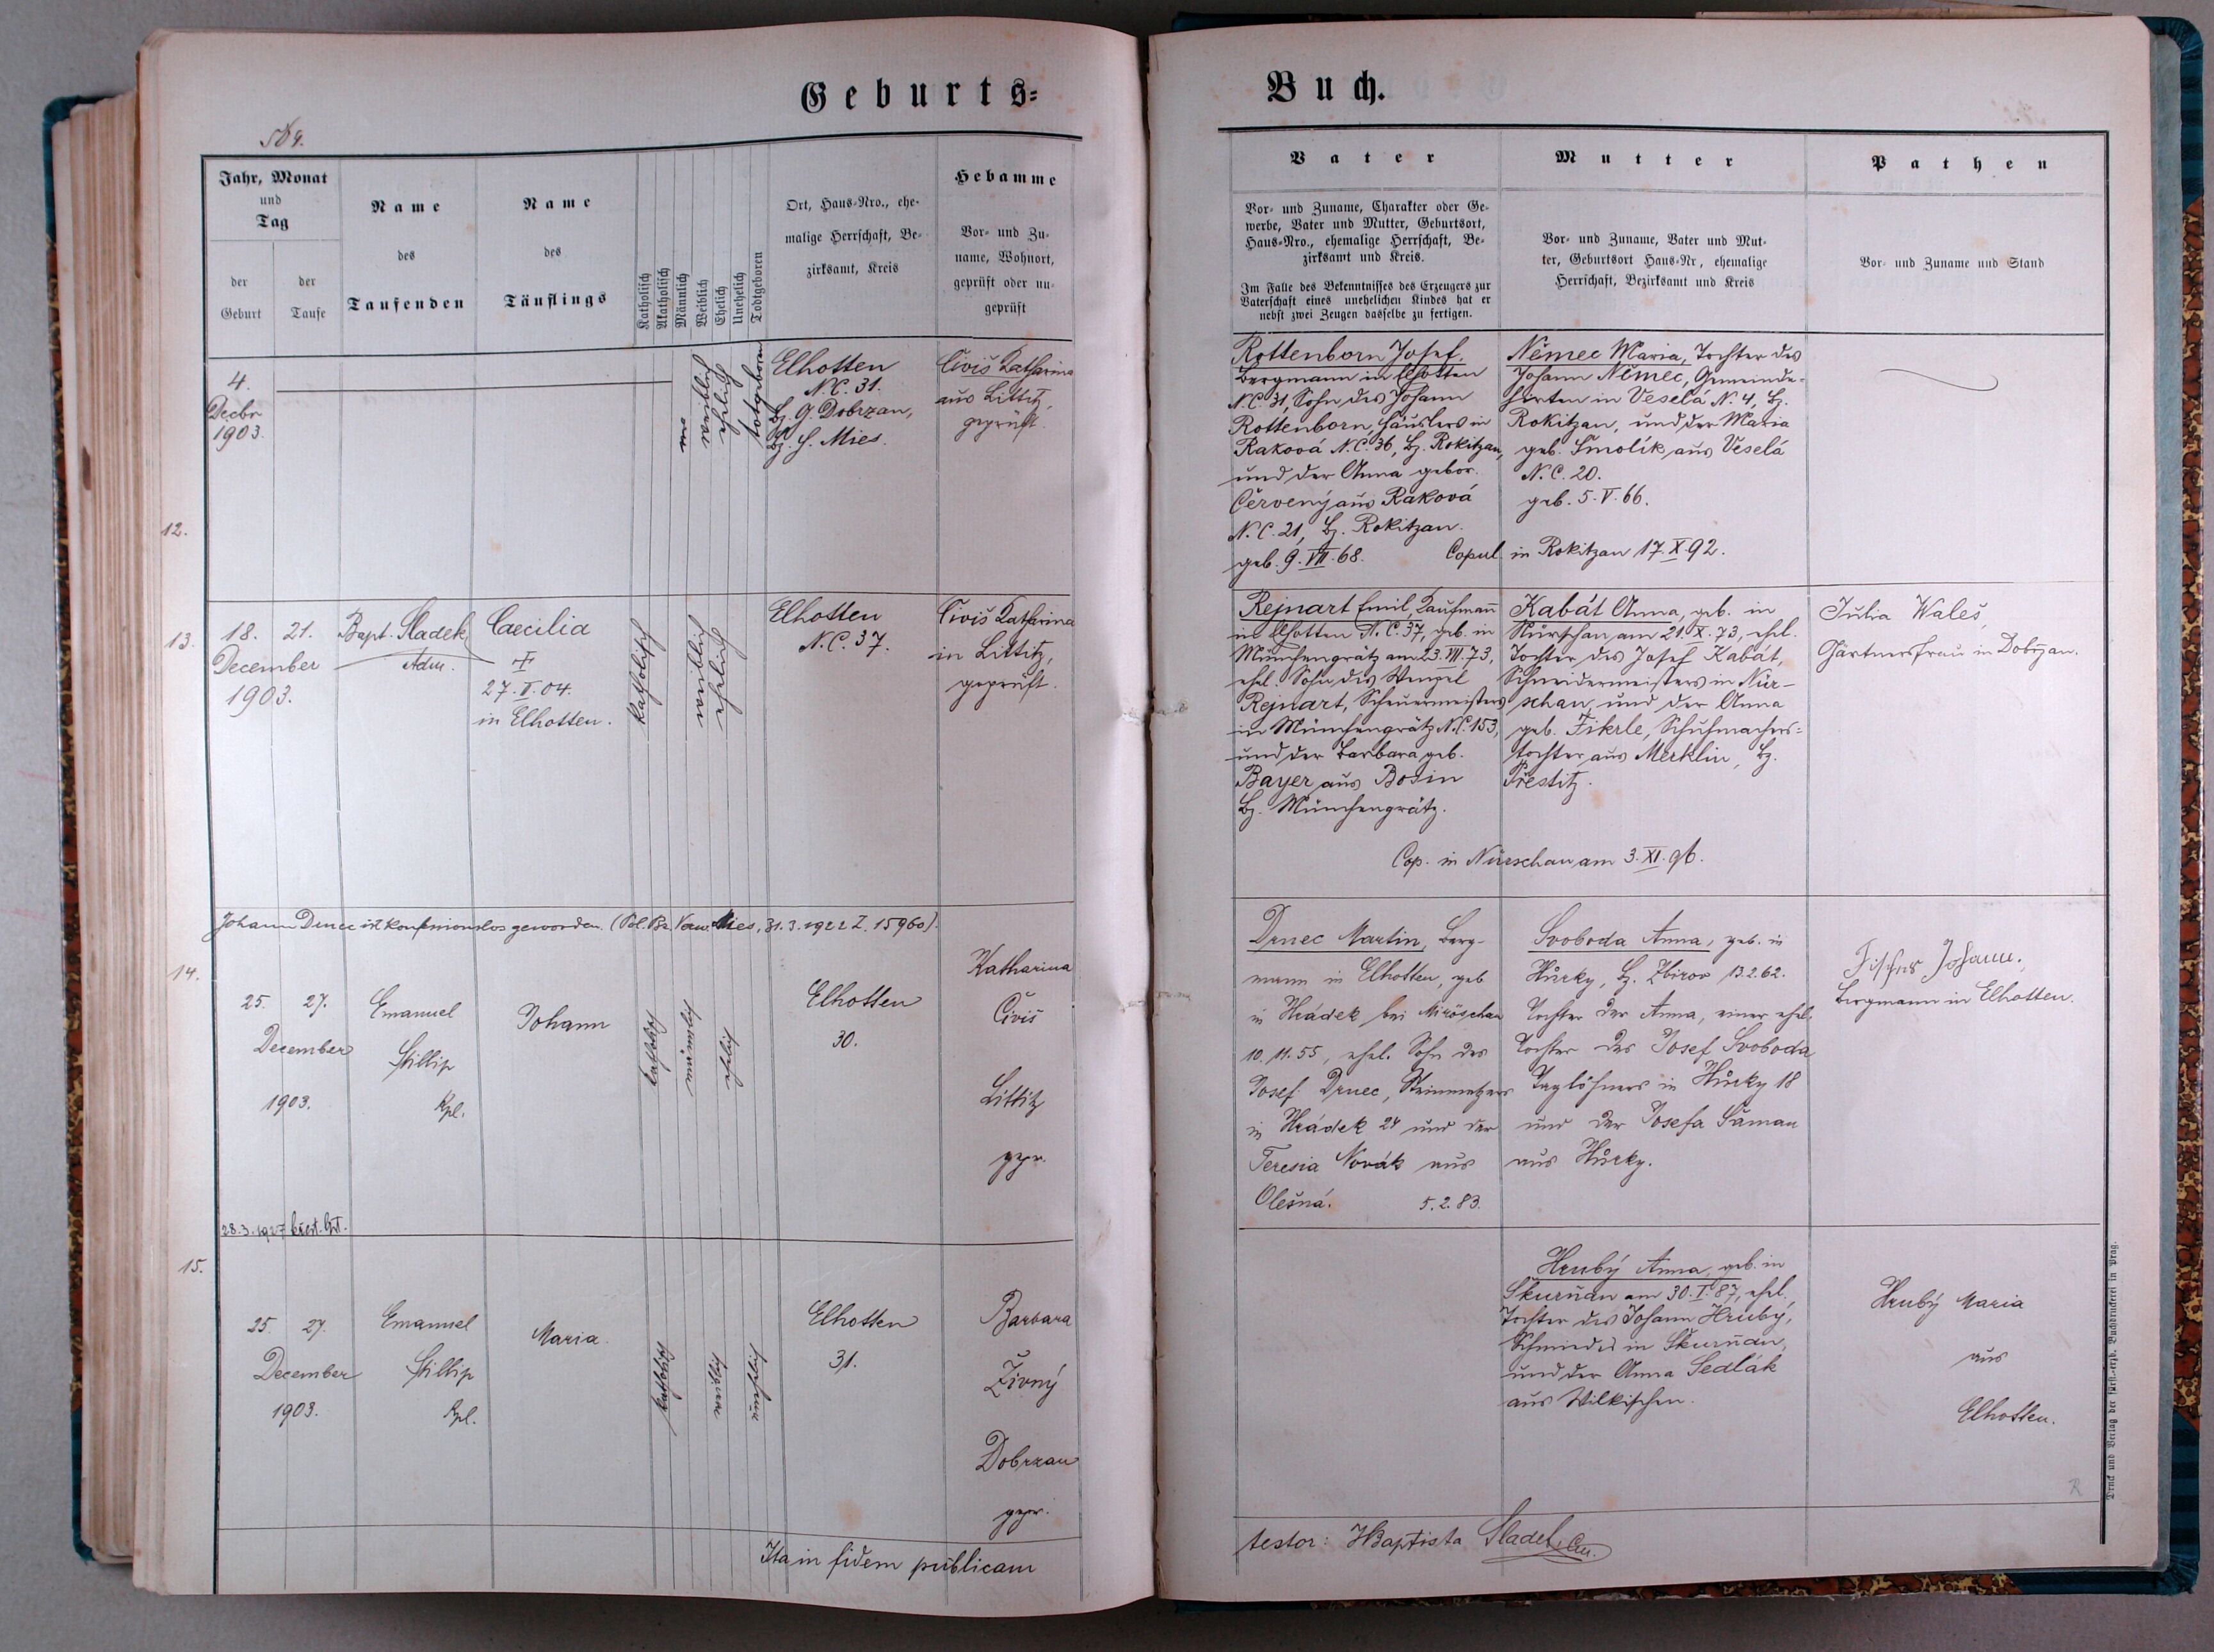 Geburts=
Buch.
509.
Jahr, Monat
und
Tag
der
Geburt
der
Taufe
Name
des
Taufenden
Name
des
Täuflings
Katholisch
Akatholisch
Männlich
Weiblich
Ehelich
Unehelich
Todtgeboren
Ort, Haus-Nro., ehe-
malige Herrschaft, Be-
zirksamt, Kreis
Hebamme
Vor- und Zu-
name, Wohnort,
geprüft oder un-
geprüft
Vater
Vor- und Zuname, Charakter oder Ge-
werbe, Vater und Mutter, Geburtsort,
Haus-Nro., ehemalige Herrschaft, Be-
zirksamt und Kreis.
Im Falle des Bekenntnisses des Erzeugers zur
Vaterschaft eines unehelichen Kindes hat er
nebst zwei Zeugen dasselbe zu fertigen.
Mutter
Vor- und Zuname, Vater und Mut-
ter, Geburtsort Haus-Nr, ehemalige
Herrschaft, Bezirksamt und Kreis
Pathen
Vor- und Zuname und Stand
12.
4.
Decbr
1903.
weiblich
ehelich
totgeboren
Elhotten
N.C. 31.
Bz. G. Dobrzan,
Bz. H. Mies.
Civiš Katharina
aus Littitz,
geprüft.
Rottenborn Josef,
Bergmann in Elhotten
N.C. 31, Sohn des Johann
Rottenborn, Häuslers in
Raková N.C. 36, Bz. Rokitzan,
und der Anna gebor.
Červený aus Raková
N.C. 21, Bz. Rokitzan.
geb. 9.VII.68.
Němec Maria, Tochter des
Johann Němec, Gemeinde-
hirten in Veselá N. 4, Bz.
Rokitzan, und der Maria
geb. Smolík aus Veselá
N.C. 20.
geb. 5.V.66.
Copul. in Rokitzan 17.X.92.
13.
18. 21.
December
1903.
Bapt. Sladek
Adm.
Caecilia
†
27.II.04.
in Elhotten.
katholisch
weiblich
ehelich
Elhotten
N.C. 37.
Civiš Katharina
in Littitz,
geprüft.
Rejnart Emil, Kaufmann
in Elhotten N.C. 37, geb. in
Münchengrätz am 23.VII.73,
ehel. Sohn des Wenzel
Rejnart, Scheuermeisters
in Münchengrätz N.C. 153,
und der Barbara geb.
Bayer aus Bosin
Bz. Münchengrätz.
Kabát Anna, geb. in
Nürschan am 21.X.73, ehel.
Tochter des Josef Kabát,
Schneidermeisters in Nür-
schan und der Anna
geb. Fikrle, Schuhmachers=
tochter aus Merklin, Bz.
Přestitz.
Cop. in Nürschan am 3.XI.96.
Julia Waleš,
Gärtnersfrau in Dobrzan.
Johann Drnec ist konfessionslos geworden. (Pol. Bz. Verw. Mies, 31.3.1922 Z. 15960).
14.
25. 27.
December
1903.
Emanuel
Kpl.
Johann
katholisch
männlich
ehelich
Elhotten
30.
Katharina
Čiviš
Littitz
gepr.
Drnec Martin, Berg-
mann in Elhotten, geb
in Hrádek bei Miröschau
10.11.55, ehel. Sohn des
Josef Drnec, Steinmetzers
in Hrádek 24 und der
Teresia Novák aus
Olešná. 5.2.83.
Svoboda Anna, geb. in
Hůrky, Bz. Zbirov 13.2.62.
Tochter der Anna, einer ehel.
Tochter des Josef Svoboda
Taglöhners in Hůrky 18
und der Josefa Šaman
aus Hůrky.
Fischer Johann.
Bergmann in Elhotten.
28.3.1927
15.
25. 27.
December
1903.
Emanuel
Kpl.
Maria.
katholisch
weiblich
unehelich
Elhotten
31.
Barbara
Živný
Dobrzan
gepr.
Hrubý Anna, geb. in
Skurňan am 30.I.87, ehel.
Tochter des Johann Hrubý,
Schmiedes in Skurňan,
und der Anna Sedlák
aus Wilkischen.
Hrubý Maria
aus
Elhotten.
Ita in fidem publicam
testor: J Baptista Sladek
Druck und Verlag der fürst.-erzb. Buchdruckerei in Prag.